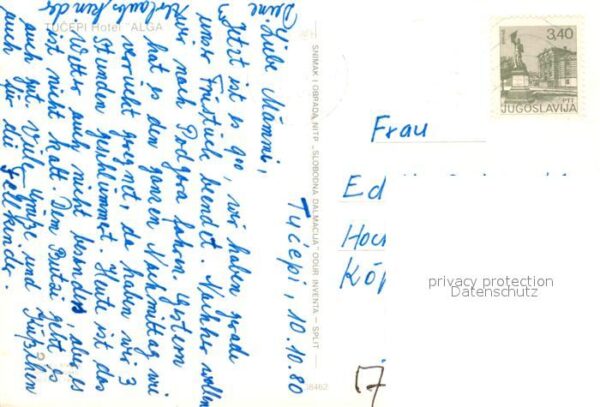 TUČEPI Hotel "ALGA"
Tučepi, 10.10.80
Liebe Mammi,
Jetzt ist es 9⁰⁰, wir haben grade
unser Frühstück beendet. Nachher wollen
wir nach Podgora fahren. Gestern
hat es den ganzen Nachmittag wie
verrückt geregnet, da haben wir 3
Stunden geschlummert. Heute ist das
Wetter auch nicht besonders, aber es
ist nicht kalt. Dem Butzi geht es
auch gut. Viele und Küßchen
auch für die Fellkinder.
Deine
Urlaubskinder
SNIMAK I OBRADA NITP "SLOBODNA DALMACIJA" OOUR INVENTA — SPLIT
3,40
PTT
JUGOSLAVIJA
Frau
Ed
Hoc
Kö
privacy protection
Datenschutz
17